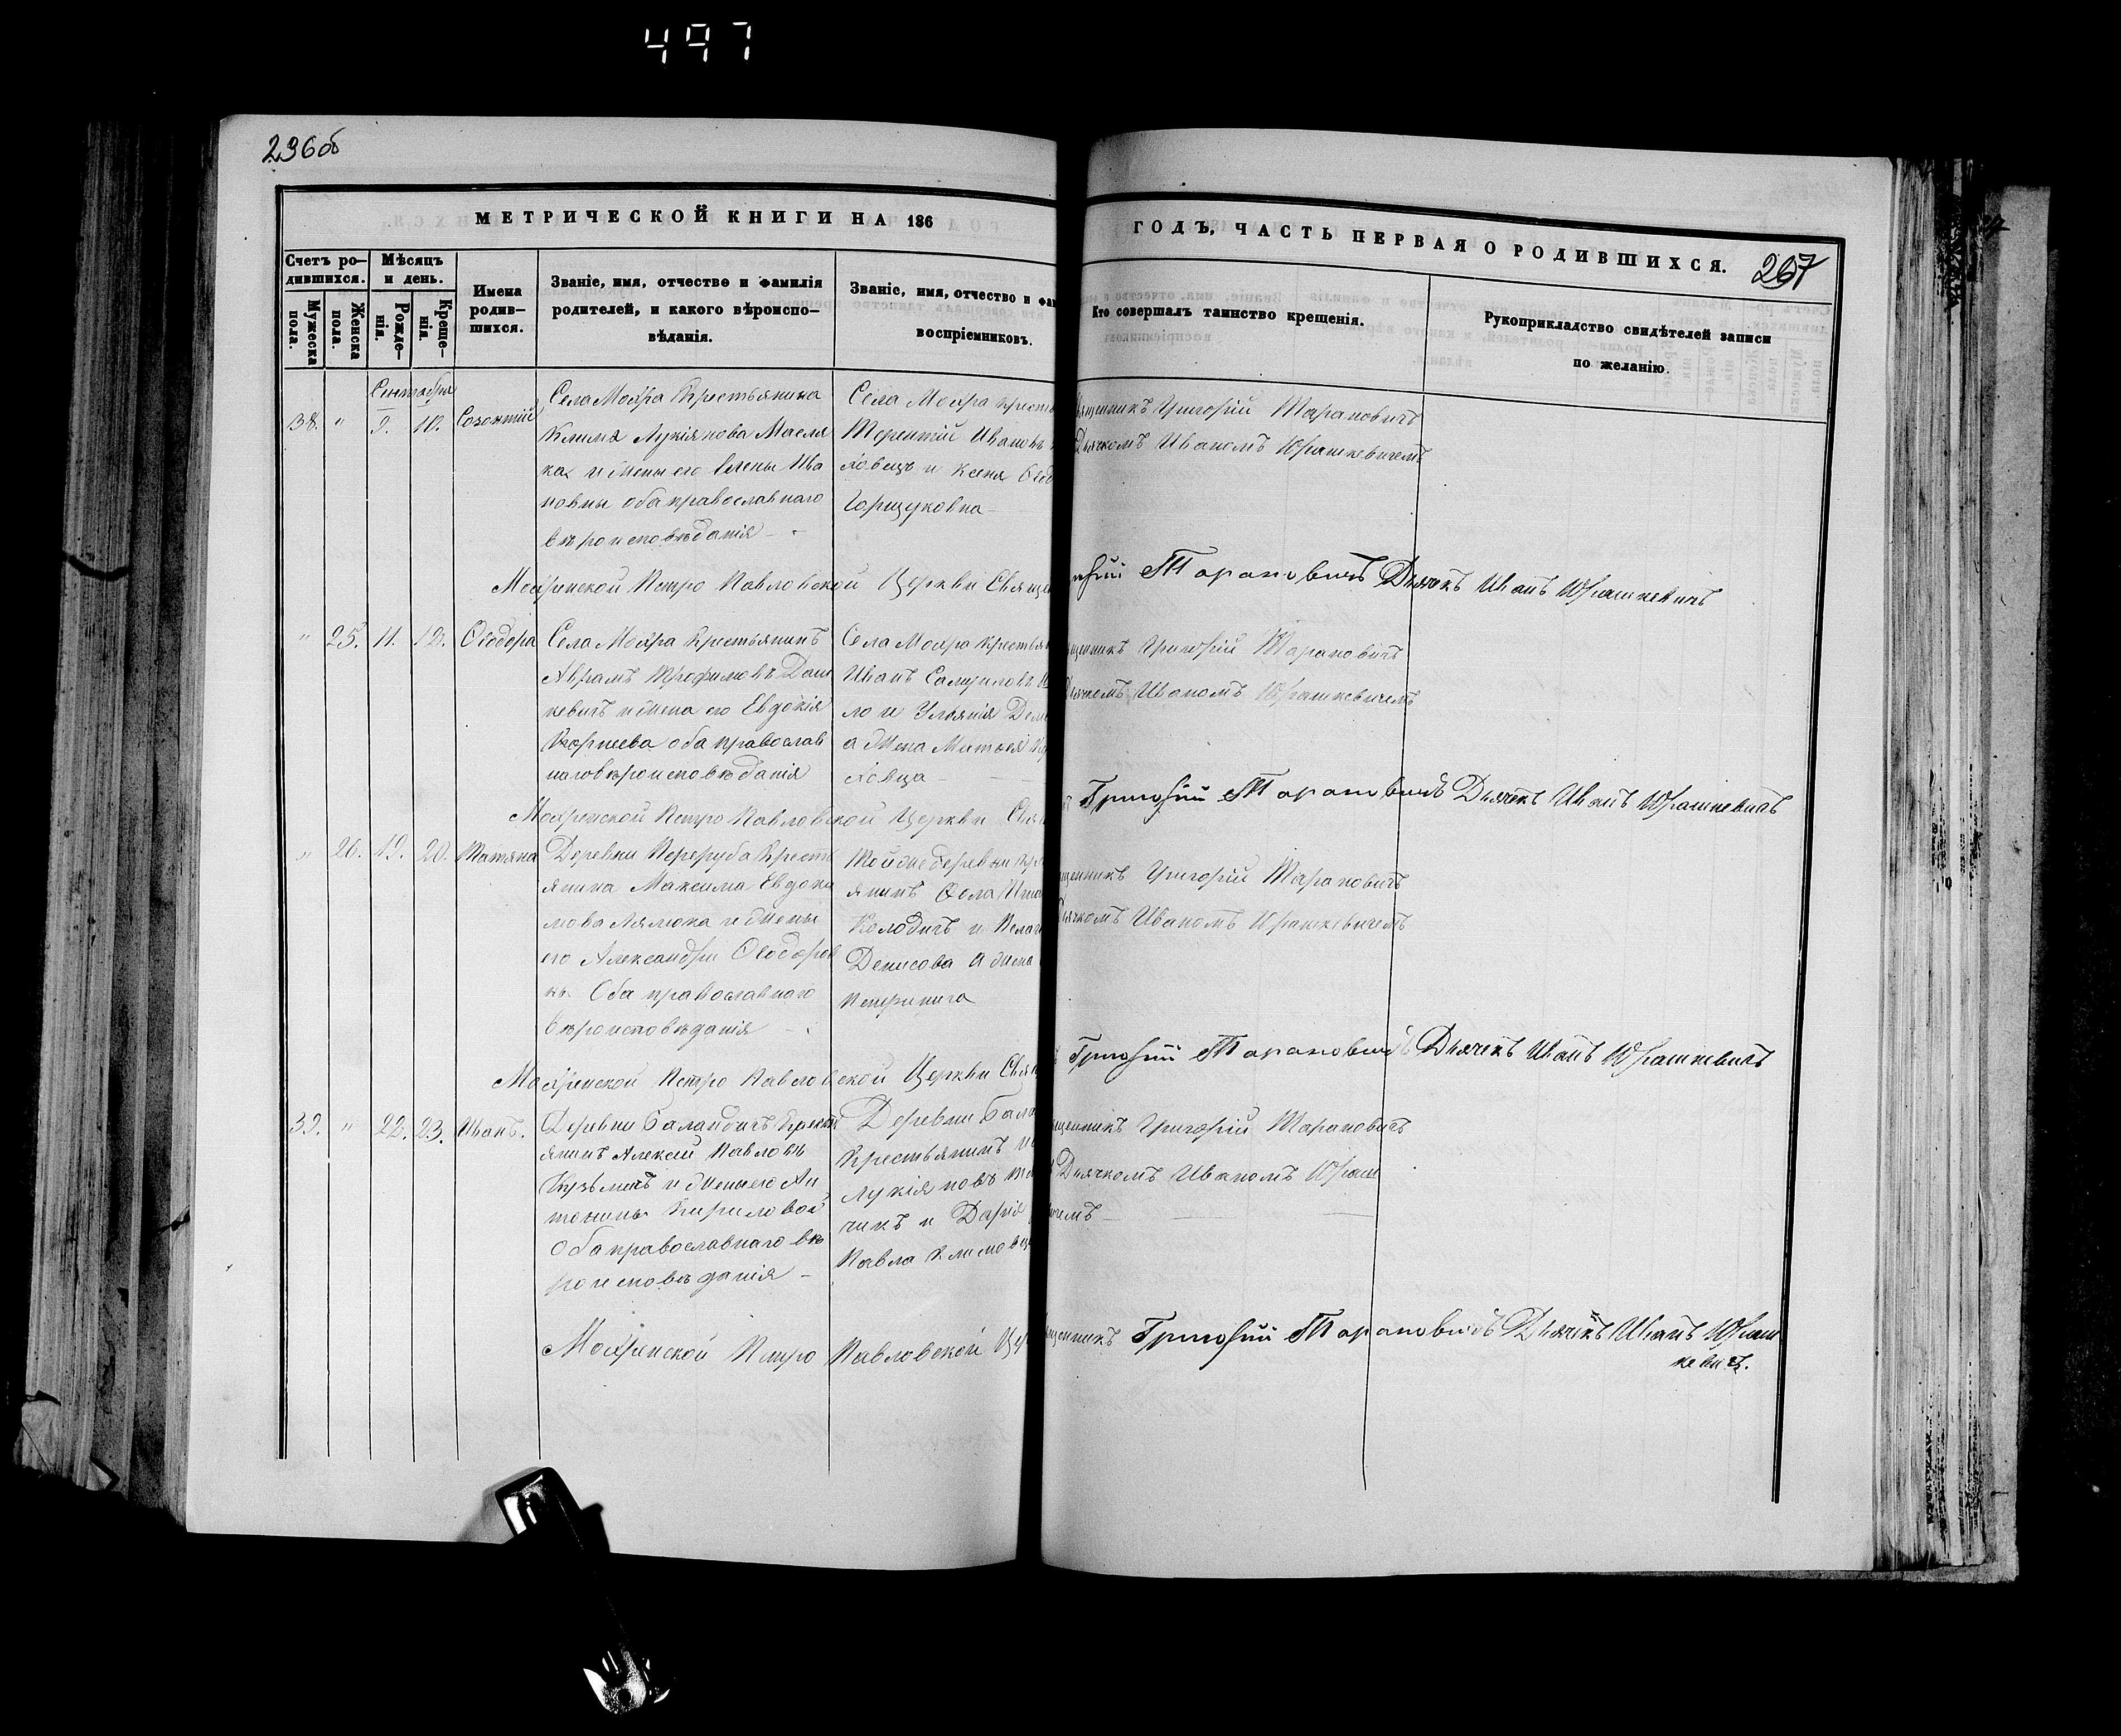 497
296об
МЕТРИЧЕСКОЙ КНИГИ НА 186
ГОДЪ, ЧАСТЬ ПЕРВАЯ О РОДИВШИХСЯ.
267
Счетъ ро-
дившихся.
Мужеска
пола.
Женска
пола.
Мѣсяцъ
и день.
Рожде-
нія.
Креще-
нія.
Имена
родив-
шихся.
Званіе, имя, отчество и фамилія
родителей, и какого вѣроиспо-
вѣданія.
Званіе, имя, отчество и фа
воспріемниковъ.
Кто совершалъ таинство крещенія.
Рукоприкладство свидѣтелей записи
по желанію.
Сентября
38. " 9. 10. Созонтій
Села Мохра Крестьянина
Климa Лукіянова Масля
ка и жены его Елены Ива
новны оба православнаго
вѣроисповѣданія
Села Мохра Кресть
Терентій Ивановъ
ховецъ и Ксенія Ѳеод
Горщуковна
ященникъ Григорій Тарановичъ
Дьячкомъ Иваномъ Юрашкевичемъ
Мохренской Петро Павловской Церкви Священ
Тарановичъ Дьячекъ Иванъ Юрашкевичъ
" 25. 11. 12. Ѳеодора
Села Мохра Крестьянинъ
Аврамъ Трофимовъ Даш
кевичъ и жена его Евдокія
Корнеева оба православ
наго вѣроисповѣданія
Села Мохра Крестьян
Иванъ
ло и Уліянія Дем
а жена Матѳея
ховца
щенникъ Григорій Тарановичъ
Дьячкомъ Иваномъ Юрашкевичемъ
Мохренской Петро Павловской Церкви Свящ
Григорій Тарановичъ Дьячекъ Иванъ Юрашкевичъ
" 26. 19. 20. Татяна
Деревни Переруба Кресть
янина Максима Евдоки
мова Лялюка и жены
его Александры Ѳеодоров
ны Оба православнаго
вѣроисповѣданія
Тойже деревни Кре
янинъ
Колодичъ и Пелаг
Денисова а жена
щенникъ Григорій Тарановичъ
Дьячкомъ Иваномъ Юрашкевичемъ
Мохренской Петро Павловской Церкви Свящ
Григорій Тарановичъ Дьячекъ Иванъ Юрашкевичъ
39. " 22. 23. Иванъ.
Деревни Баландичъ Кресть
янинъ Алексій Павловъ
Кузьмичъ и жены его Ан
тонины Кириловой
Оба православнаго вѣ
роисповѣданія
Деревни Бала
Крестьянинъ
Лукіяновъ
чикъ и Дарія
Павла Климовц
щенникъ Григорій Тарановичъ
Дьячкомъ Иваномъ Юраш
чемъ
Мохренской Петро Павловской Цер
щенникъ Григорій Тарановичъ Дьячекъ Иванъ Юраш
кевичъ.